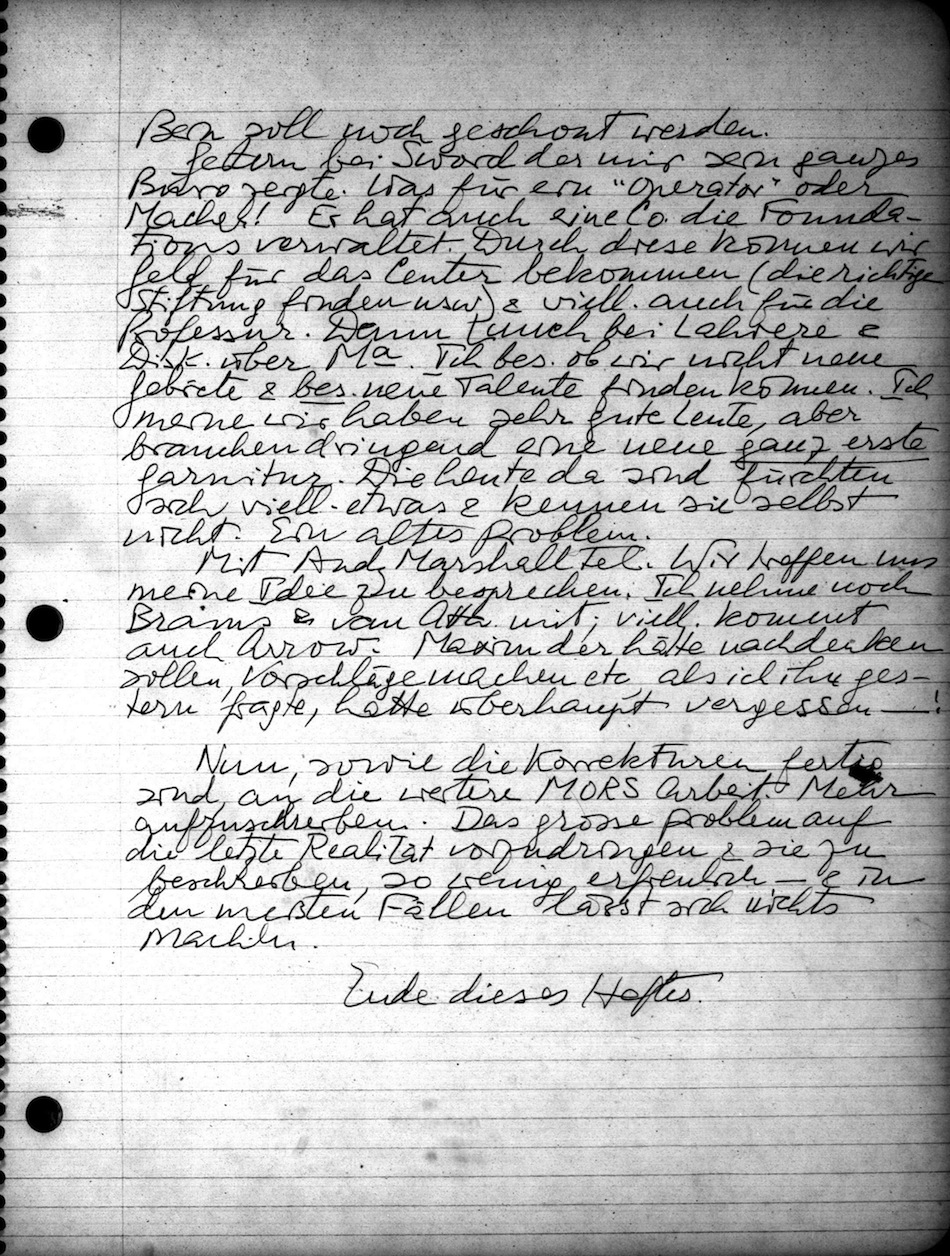 Bein soll noch geschont werden.
Gestern bei Sword der mir sein ganzes
Büro zeigte. Was für ein "Operator" oder
Macher! Er hat auch eine Co. die Founda-
tions verwaltet. Durch diese können wir
Geld für das Center bekommen (die richtige
Stiftung finden usw) & viell. auch für die
Professur. Dann Lunch bei Lahiere &
Disk. über Ma. Ich bes. ob wir nicht neue
Gebiete & bes. neue Talente finden können. Ich
meine wir haben sehr gute Leute, aber
brauchen dringend eine neue ganz erste
Garnitur. Die Leute da sind fürchten
sich viell. etwas & kennen sie selbst
nicht. Ein altes Problem.
Mit And. Marshall Tel. Wir treffen uns
meine Idee zu besprechen. Ich nehme noch
Brams & van Atta mit; viell. kommt
auch Arrow. Maxim der hätte nachdenken
sollen, Vorschläge machen etc, als ich ihn ges-
tern fragte, hatte überhaupt vergessen —!
Nun, sowie die Korrekturen fertig
sind, an die weitere MORS Arbeit. Mehr
aufzuschreiben. Das grosse Problem auf
die letzte Realität vorzudringen & sie zu
beschreiben, so wenig erfreulich — & in
den meisten Fällen lässt sich nichts
machen.
Ende dieses Heftes.